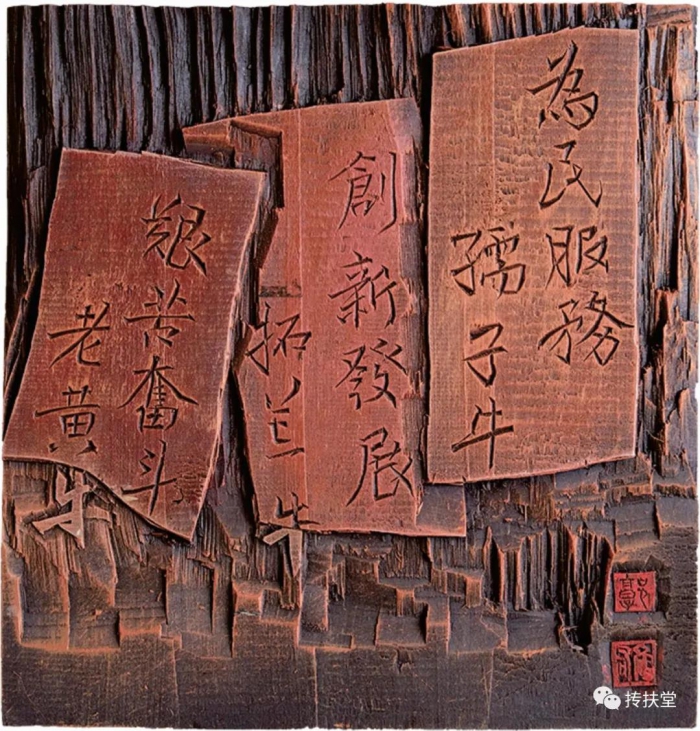 為民服務
孺子牛
創新發展
拓荒牛
艱苦奮斗
老黄牛
抟扶堂